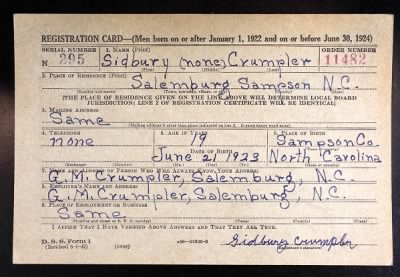 REGISTRATION CARD—(Men born on or after January 1, 1922 and on or before June 30, 1924)
SERIAL NUMBER 1. NAME (Print) ORDER NUMBER
N 295 Sidbury (none) Crumpler 11482
(First) (Middle) (Last)
2. PLACE OF RESIDENCE (Print)
Salemburg Sampson N.C.
[THE PLACE OF RESIDENCE GIVEN ON THE LINE ABOVE WILL DETERMINE LOCAL BOARD
JURISDICTION; LINE 2 OF REGISTRATION CERTIFICATE WILL BE IDENTICAL]
3. MAILING ADDRESS
Same
[Mailing address if other than place indicated on line 2. If same, insert word same]
4. TELEPHONE 5. AGE IN YEARS 6. PLACE OF BIRTH
none 19 Sampson Co.
DATE OF BIRTH
June 21 1923 North Carolina
(Exchange) (Number) (Mo.) (Day) (Yr.) (State or country)
7. NAME AND ADDRESS OF PERSON WHO WILL ALWAYS KNOW YOUR ADDRESS
G. M. Crumpler, Salemburg, N.C.
8. EMPLOYER'S NAME AND ADDRESS
G. M. Crumpler, Salemburg, N.C.
9. PLACE OF EMPLOYMENT OR BUSINESS
Same
I AFFIRM THAT I HAVE VERIFIED ABOVE ANSWERS AND THAT THEY ARE TRUE.
D. S. S. Form 1
(over)
Sidbury Crumpler